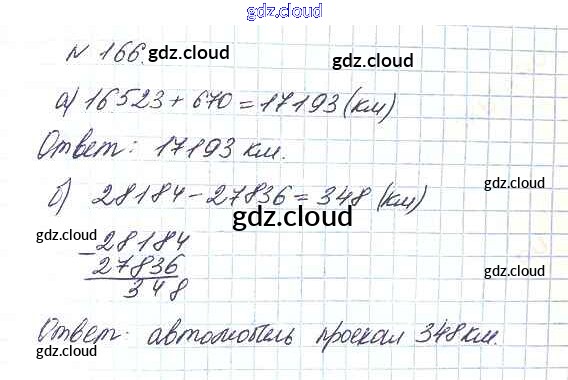 gdz.cloud
№ 166. gdz.cloud
gdz.cloud
а) 16523 + 670 = 17193 (км)
Ответ: 17193 км.
б) 28184 - 27836 = 348 (км)
gdz.cloud
gdz.cloud
gdz.cloud
- 28184
27836
348
gdz.cloud
Ответ: автомобиль проехал 348 км.
gdz.cloud
gdz.cloud